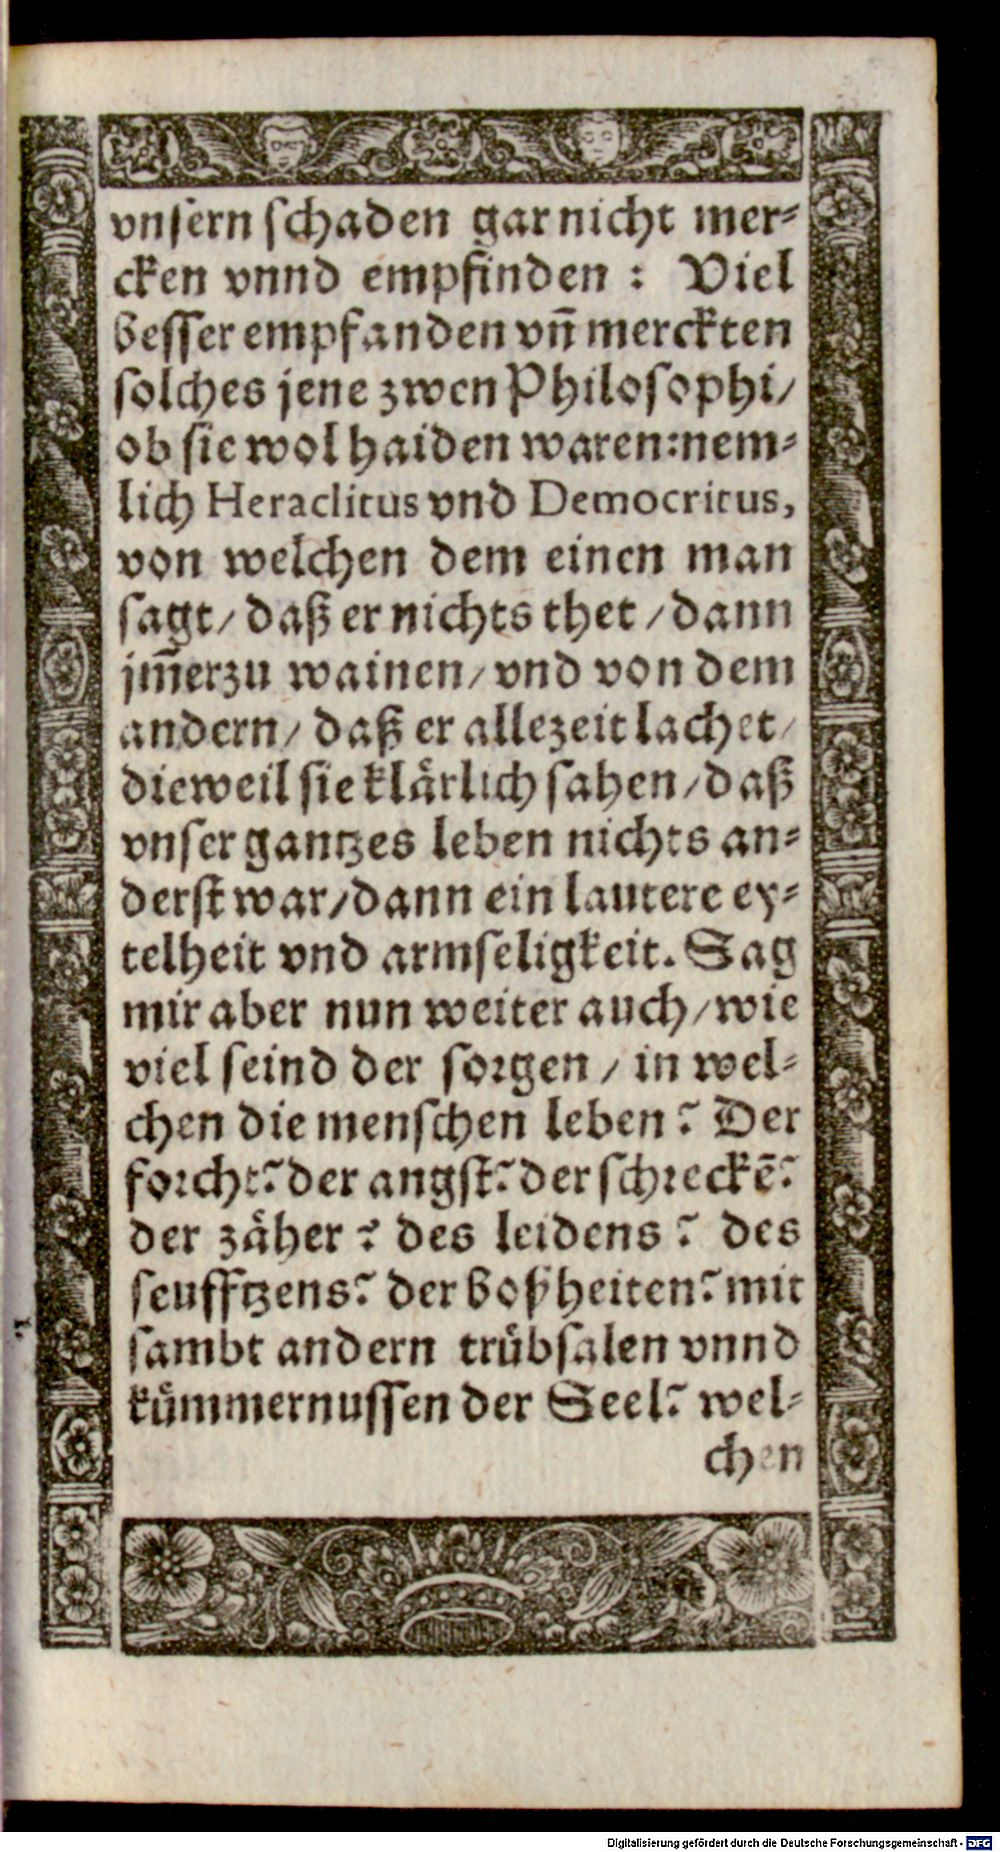 vnsern schaden gar nicht mer-
cken vnnd empfinden : Viel
besser empfanden vñ merckten
solches jene zwen Philosophi/
ob sie wol haiden waren: nem-
lich Heraclitus vnd Democritus,
von welchen dem einen man
sagt/ daß er nichts thet / dann
jm̃erzu wainen/ vnd von dem
andern/ daß er allezeit lachet/
dieweil sie klärlich sahen/ daß
vnser gantzes leben nichts an-
derst war/ dann ein lautere ey-
telheit vnd armseligkeit. Sag
mir aber nun weiter auch/ wie
viel seind der sorgen / in wel-
chen die menschen leben? Der
forcht? der angst? der schreckē?
der zäher ? des leidens ? des
seufftzens? der boßheiten? mit
sambt andern trübsalen vnnd
kümmernussen der Seel? wel-
chen
Digitalisierung gefördert durch die Deutsche Forschungsgemeinschaft - DFG